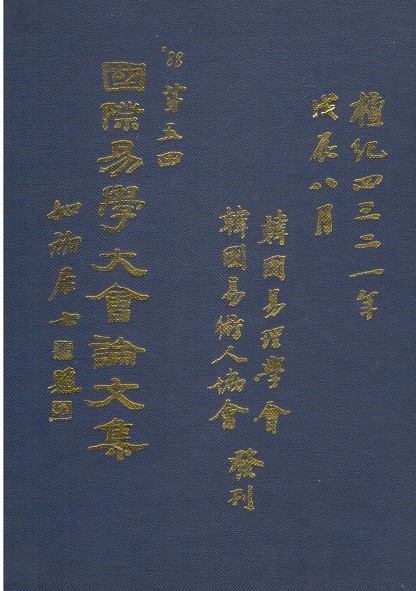 檀紀四三二一年
戊辰八月
韓國易理學會
韓國易術人協會
發刊
'88 第五回
國際易學大會論文集
如 居士 題